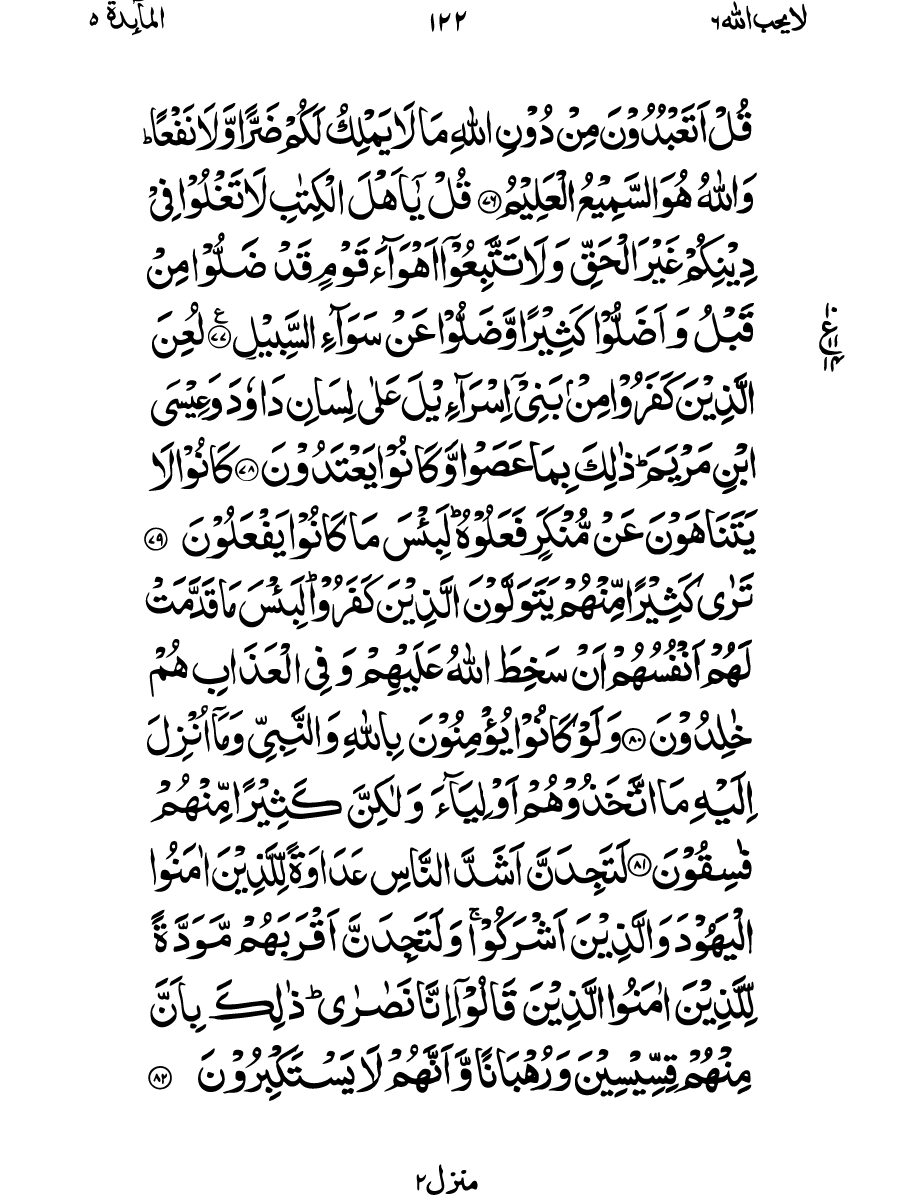 لا یحب الله ٦ ١٢٢ المآىِٕدة ٥
قُلْ اَتَعْبُدُوْنَ مِنْ دُوْنِ اللّٰهِ مَا لَا یَمْلِكُ لَكُمْ ضَرًّا وَّلَا نَفْعًاؕ
وَاللّٰهُ هُوَ السَّمِیْعُ الْعَلِیْمُ ﴿٧٦﴾ قُلْ یٰۤاَهْلَ الْكِتٰبِ لَا تَغْلُوْا فِیْ
دِیْنِكُمْ غَیْرَ الْحَقِّ وَلَا تَتَّبِعُوْۤا اَهْوَآءَ قَوْمٍ قَدْ ضَلُّوْا مِنْ
قَبْلُ وَاَضَلُّوْا كَثِیْرًا وَّضَلُّوْا عَنْ سَوَآءِ السَّبِیْلِ ﴿٧٧﴾ۧ لُعِنَ
١٠
ع
١١
١٤
الَّذِیْنَ كَفَرُوْا مِنْۢ بَنِیْۤ اِسْرَآءِیْلَ عَلٰی لِسَانِ دَاوٗدَ وَعِیْسَی
ابْنِ مَرْیَمَؕ ذٰلِكَ بِمَا عَصَوْا وَّكَانُوْا یَعْتَدُوْنَ ﴿٧٨﴾ كَانُوْا لَا
یَتَنَاهَوْنَ عَنْ مُّنْكَرٍ فَعَلُوْهُؕ لَبِئْسَ مَا كَانُوْا یَفْعَلُوْنَ ﴿٧٩﴾
تَرٰی كَثِیْرًا مِّنْهُمْ یَتَوَلَّوْنَ الَّذِیْنَ كَفَرُوْاؕ لَبِئْسَ مَا قَدَّمَتْ
لَهُمْ اَنْفُسُهُمْ اَنْ سَخِطَ اللّٰهُ عَلَیْهِمْ وَفِی الْعَذَابِ هُمْ
خٰلِدُوْنَ ﴿٨٠﴾ وَلَوْ كَانُوْا یُؤْمِنُوْنَ بِاللّٰهِ وَالنَّبِیِّ وَمَاۤ اُنْزِلَ
اِلَیْهِ مَا اتَّخَذُوْهُمْ اَوْلِیَآءَ وَلٰكِنَّ كَثِیْرًا مِّنْهُمْ
فٰسِقُوْنَ ﴿٨١﴾ لَتَجِدَنَّ اَشَدَّ النَّاسِ عَدَاوَةً لِّلَّذِیْنَ اٰمَنُوا
الْیَهُوْدَ وَالَّذِیْنَ اَشْرَكُوْاۚ وَلَتَجِدَنَّ اَقْرَبَهُمْ مَّوَدَّةً
لِّلَّذِیْنَ اٰمَنُوا الَّذِیْنَ قَالُوْۤا اِنَّا نَصٰرٰیؕ ذٰلِكَ بِاَنَّ
مِنْهُمْ قِسِّیْسِیْنَ وَرُهْبَانًا وَّاَنَّهُمْ لَا یَسْتَكْبِرُوْنَ ﴿٨٢﴾
منزل ٢